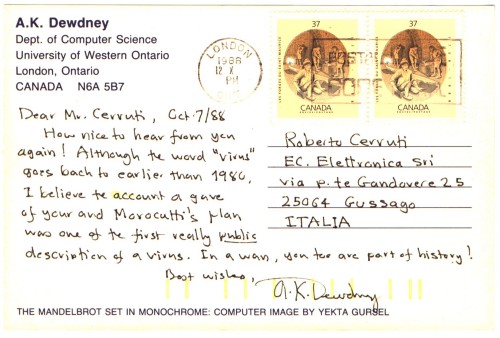 A.K. Dewdney
Dept. of Computer Science
University of Western Ontario
London, Ontario
CANADA N6A 5B7
Dear Mr. Cerruti, Oct. 7/88
How nice to hear from you
again! Although the word "virus"
goes back to earlier than 1980,
I believe the account I gave
of your and Morocutti's plan
was one of the first really public
description of a virus. In a way, you too are part of history!
Best wishes,
A.K. Dewdney
THE MANDELBROT SET IN MONOCHROME: COMPUTER IMAGE BY YEKTA GURSEL
LONDON
1988
12 X
PM
POSTAL
CODE
37
CANADA
37
CANADA
Roberto Cerruti
EC. Elettronica Srl
via p.te Gandovere 25
25064 Gussago
ITALIA